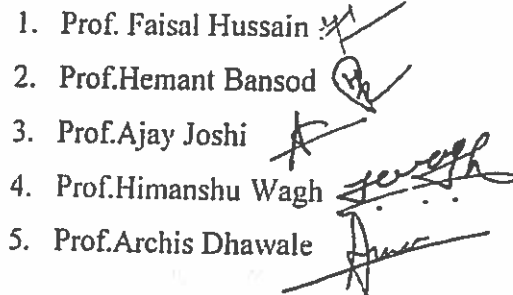 1. Prof. Faisal Hussain
2. Prof.Hemant Bansod
3. Prof.Ajay Joshi
4. Prof.Himanshu Wagh
5. Prof.Archis Dhawale